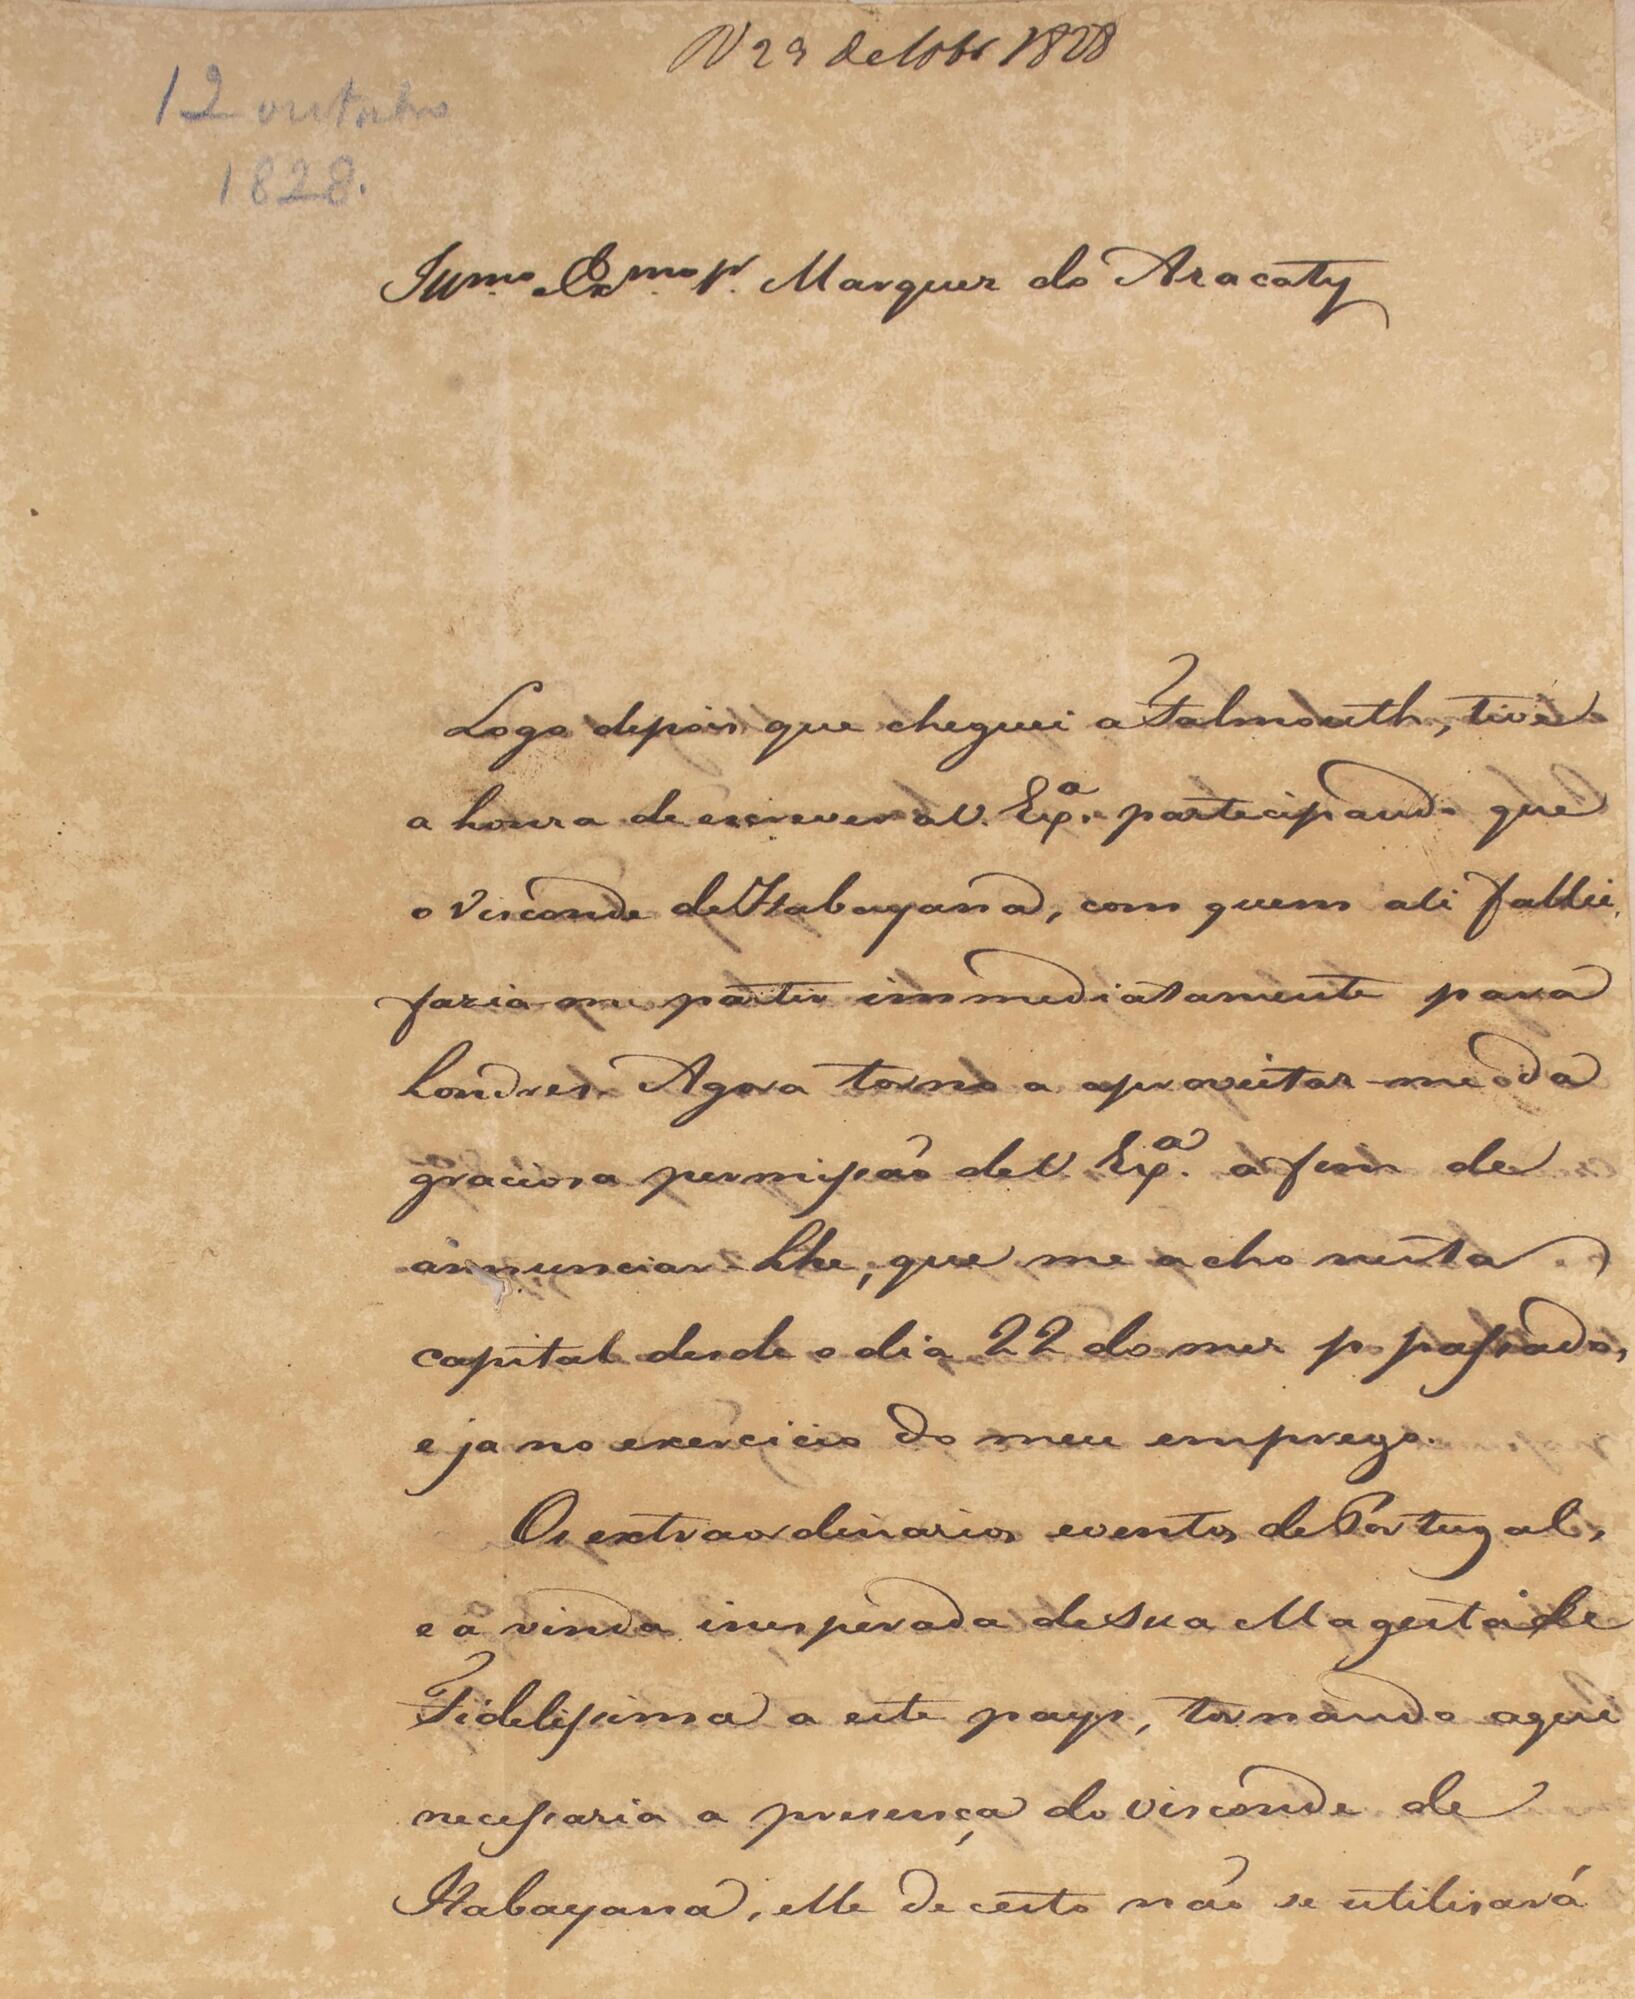 12 outubro
1828.
Illmo. Exmo. Sr. Marquez do Aracaty
Logo depois que cheguei a Falmouth, tive
a honra de escrever a V. Exª. partecipando que
o Visconde de Itabayana, com quem ali fallei,
faria-me partir immediatamente para
Londres. Agora torno a aproveitar-me da
graciosa permissão de V. Exª. a fim de
annunciar-lhe, que me acho nesta
capital desde o dia 22 do mez p. passado,
e ja no exercicio do meu emprego.
Os extraordinarios eventos de Portugal,
e a vinda inesperada de Sua Magestade
Fidelissima a este payz, tornando aqui
necessaria a presença do Visconde de
Itabayana, elle de certo não se utilisará